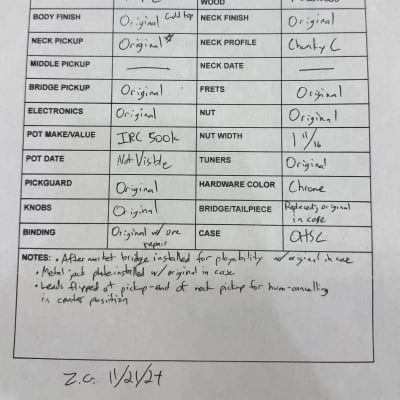 WOOD
BODY FINISH Original Gold top NECK FINISH Original
NECK PICKUP Original* NECK PROFILE Chunky C
MIDDLE PICKUP — NECK DATE —
BRIDGE PICKUP Original FRETS Original
ELECTRONICS Original NUT Original
POT MAKE/VALUE IRC 500k NUT WIDTH 1 11/16
POT DATE Not Visible TUNERS Original
PICKGUARD Original HARDWARE COLOR Chrome
KNOBS Original BRIDGE/TAILPIECE Replaced, original
in case
BINDING Original w/ one CASE OHSC
repair
NOTES: • After market bridge installed for playability w/ original in case
• Metal jack plate installed w/ original in case
• Leads flipped at pickup-end of neck pickup for hum-cancelling
in center position
Z.G. 11/21/24